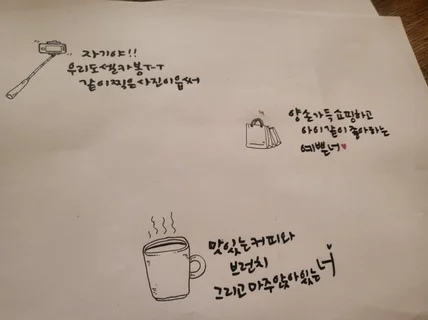 자기야!!
우리도셀카봉ㅜㅜ
같이찍은사진이읍써
양손가득쇼핑하고
아이같이좋아하는
예쁜너♥
맛있는커피와
브런치
그리고마주앉아있는너♥